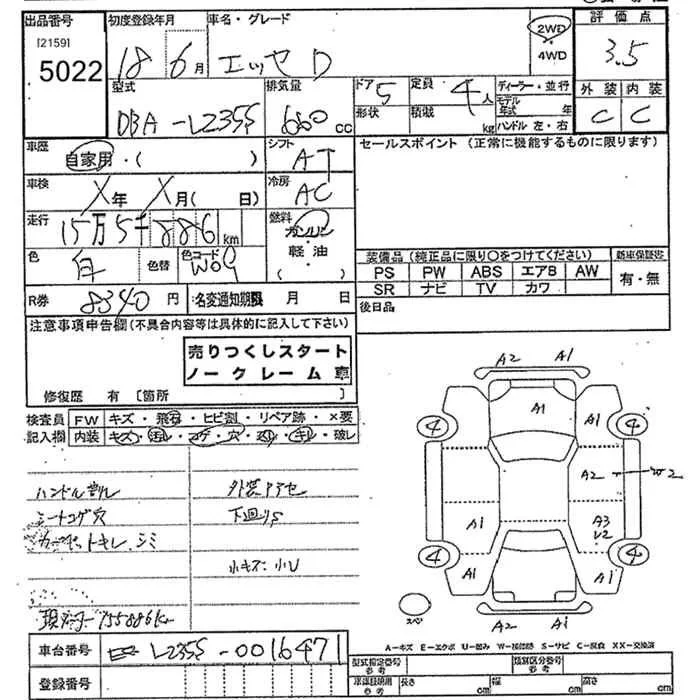 出品番号 初度登録年月 車名・グレード 2WD 評価点
[2159] 5022 18 6月 エッセ D ・4WD 3.5
型式 排気量 ドア 5 定員 4人 ディーラー・並行 外装 内装
DBA-L235S 660 cc 形状 積載 kg モデル年式 年 C C
ハンドル 左・右
車歴 自家用・( ) シフト AT セールスポイント (正常に機能するものに限ります)
車検 X年 X月(日) 冷房 AC
走行 15万5千886km 燃料 ガソリン
軽油
( )
色 白 色替 色コード W09 装備品 (純正品に限り○をつけてください) 新車保証書
PS PW ABS エアB AW 有・無
SR ナビ TV カワ
R券 8340円 名変通知期限 月 日 後日品
注意事項申告欄(不具合内容等は具体的に記入して下さい)
売りつくしスタート
ノークレーム車
修復歴 有 [箇所 ]
検査員 FW キズ・飛石・ヒビ割・リペア跡・×要
記入欄 内装 キズ・汚れ・コゲ・穴・スレ・キレ・破レ
ハンドルスレ 外装アテセ
シートコゲ穴 下廻りS
カーペットキレ、シミ
小キズ・小U
現メーター155886km
A2 A1
A1 A1
4 4
A2 W2
A1 A3
U2
4 4
A1 A1 A1
スペ A2 A1
A-キズ E-エクボ U-凹み W-補修跡 S-サビ C-腐食 XX-交換済
車台番号 L235S-0016471
登録番号
型式指定番号 参考 類別区分番号 参考
車庫証明用 参考 長さ cm 幅 cm 高さ cm